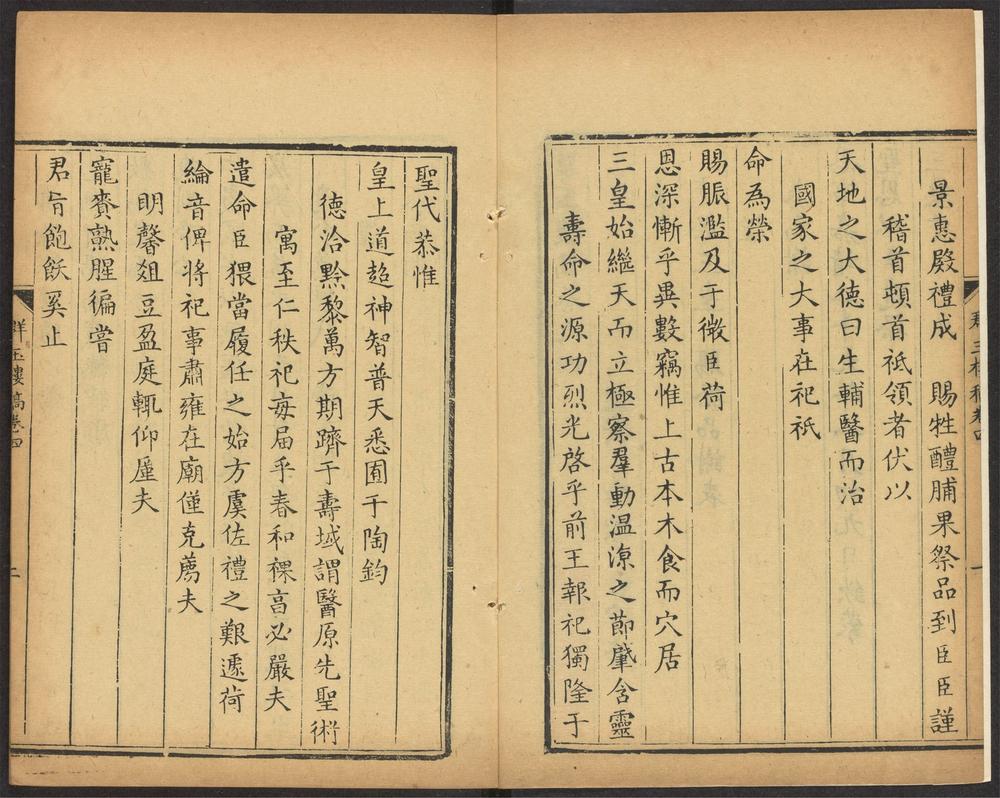 景惠殿禮成　賜牲醴脯果祭品到臣臣謹
稽首頓首祇領者伏以
天地之大德曰生輔醫而治
國家之大事在祀祇
命為榮
賜脤濫及于微臣荷
恩深慚乎異數竊惟上古本木食而穴居
三皇始繼天而立極察羣動温涼之節肇含靈
壽命之源功烈光啓乎前王報祀獨隆于
聖代恭惟
皇上道超神智普天悉囿于陶鈞
德洽黔黎萬方期躋于壽域謂醫原先聖術
寓至仁秩祀每届乎春和祼亯必嚴夫
遣命臣猥當履任之始方虞佐禮之艱遽荷
綸音俾將祀事肅雍在廟僅克薦夫
明馨爼豆盈庭輒仰厪夫
寵賚熟腥徧嘗
君㫖飽飫奚止
群玉樓稿卷四
二